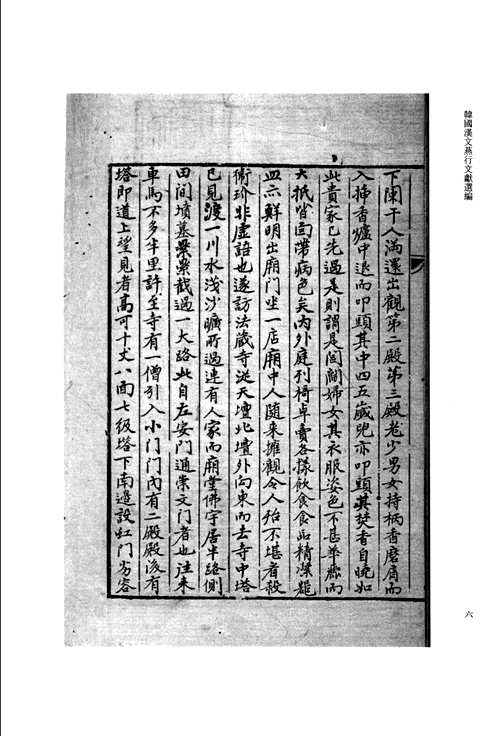 韓國漢文燕行文獻選編
下陳于人滿還出觀第二殿第三殿老少男女持柄香磨肩而
入揷香爐中退而叩頭其中四五歲兒亦叩頭其焚香自晚如
此貴家已先過是則謂是閭閻婦女其衣服姿色不甚華麗而
大抵皆面帶病色矣內外庭列椅卓賣各樣飲食食品精潔器
皿亦鮮明出廟門坐一店廟中人隨來擁觀令人殆不堪看殺
衛玠非虛語也遂訪法藏寺從天壇北壇外向東而去寺中塔
已見渡一川水淺沙曠所過連有人家而廟堂佛宇居半路側
田間墳墓纍纍截過一大路此自左安門通崇文門者也往來
車馬不多半里許至寺有一僧引入小門門內有二殿殿後有
塔即道上望見者高可十丈八面七級塔下南邊設虹門劣容
六